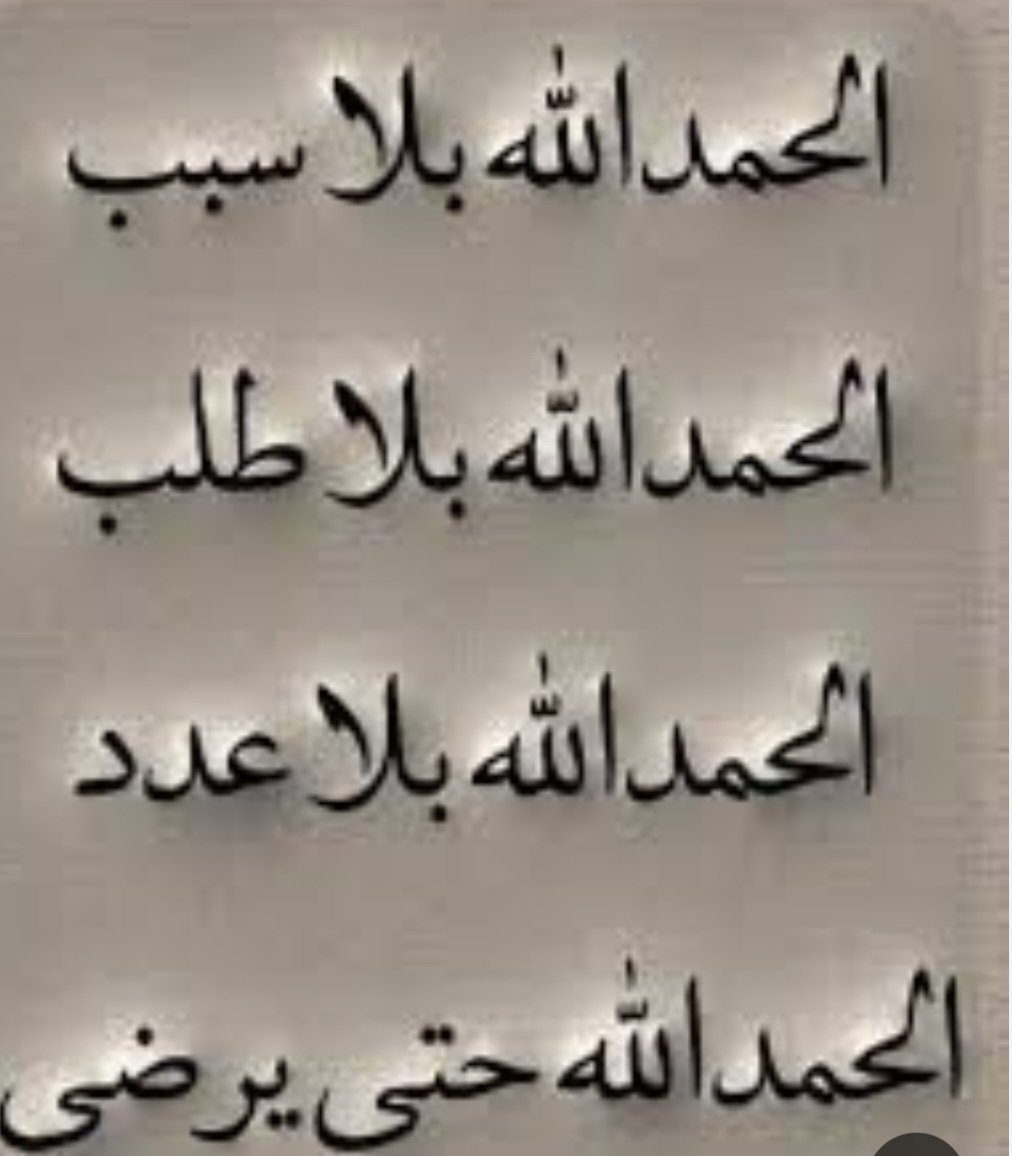 الحمدالله بلا سبب
الحمدالله بلا طلب
الحمدالله بلا عدد
الحمدالله حتى يرضى